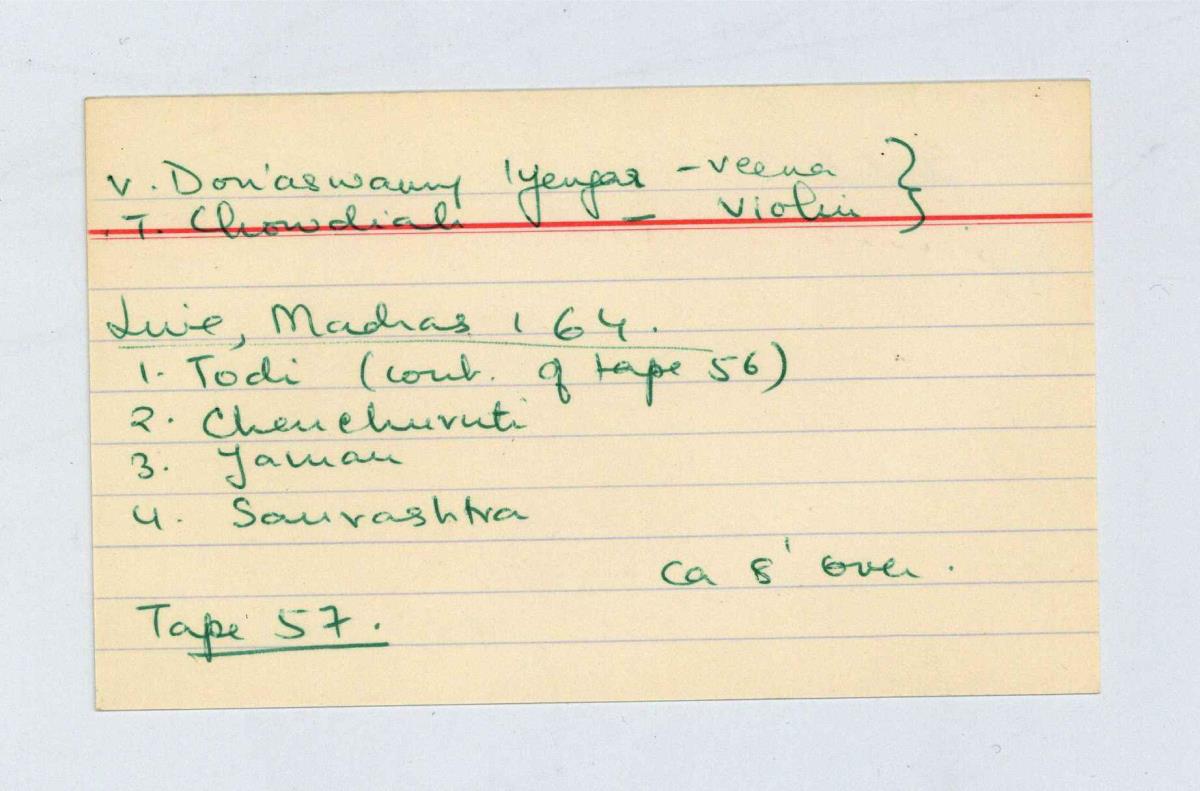 V. Doraiswamy Iyengar - Veena }
T. Chowdiah - Violin }
Live, Madras '64.
1. Todi (cont. of tape 56)
2. Chenchuruti
3. Yaman
4. Saurashtra
ca 8' over.
Tape 57.